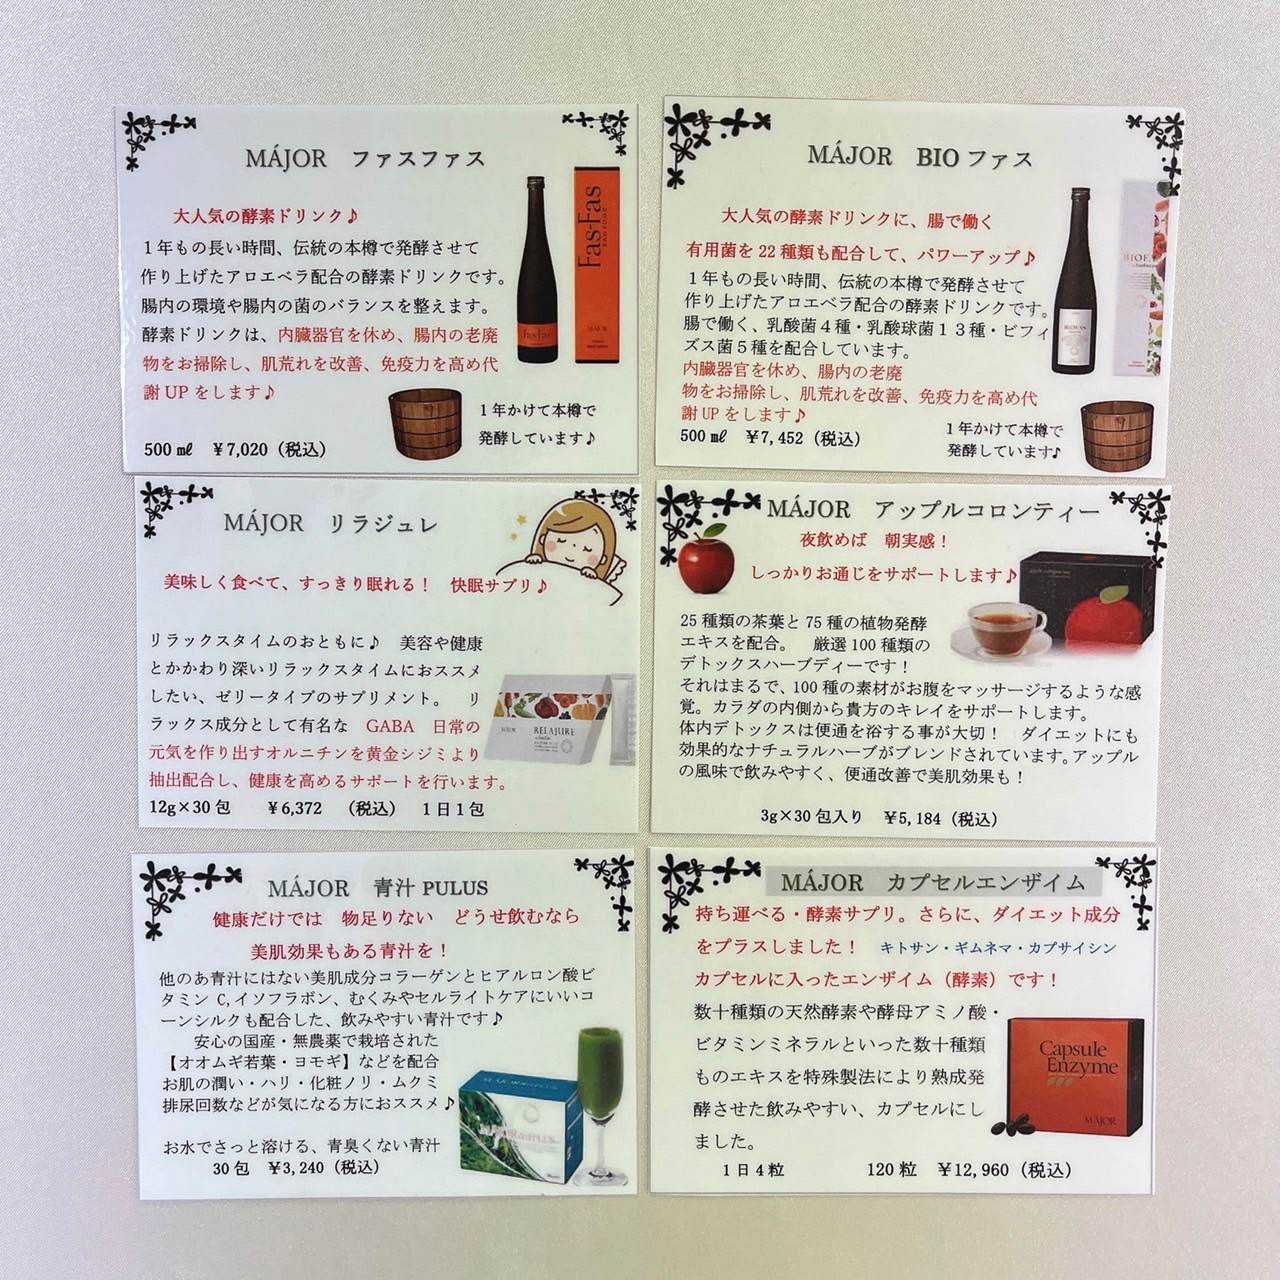 MÁJOR ファスファス
大人気の酵素ドリンク♪
１年もの長い時間、伝統の本樽で発酵させて
作り上げたアロエベラ配合の酵素ドリンクです。
腸内の環境や腸内の菌のバランスを整えます。
酵素ドリンクは、内臓器官を休め、腸内の老廃
物をお掃除し、肌荒れを改善、免疫力を高め代
謝UP をします♪
１年かけて本樽で
発酵しています♪
500 ㎖ ￥7,020（税込）
Fas-Fas
MÁJOR
Fas-Fas
MÁJOR BIO ファス
大人気の酵素ドリンクに、腸で働く
有用菌を 22 種類も配合して、パワーアップ♪
１年もの長い時間、伝統の本樽で発酵させて
作り上げたアロエベラ配合の酵素ドリンクです。
腸で働く、乳酸菌４種・乳酸球菌１３種・ビフィ
ズス菌５種を配合しています。
内臓器官を休め、腸内の老廃
物をお掃除し、肌荒れを改善、免疫力を高め代
謝UP をします♪
500 ㎖ ￥7,452（税込）
１年かけて本樽で
発酵しています♪
MÁJOR リラジュレ
美味しく食べて、すっきり眠れる！ 快眠サプリ♪
リラックスタイムのおともに♪ 美容や健康
とかかわり深いリラックスタイムにおススメ
したい、ゼリータイプのサプリメント。 リ
ラックス成分として有名な GABA 日常の
元気を作り出すオルニチンを黄金シジミより
抽出配合し、健康を高めるサポートを行います。
12g×30 包 ￥6,372 （税込） １日１包
RELAJURE
MÁJOR アップルコロンティー
夜飲めば 朝実感！
しっかりお通じをサポートします♪
25 種類の茶葉と 75 種の植物発酵
エキスを配合。 厳選 100 種類の
デトックスハーブディーです！
それはまるで、100 種の素材がお腹をマッサージするような感
覚。カラダの内側から貴方のキレイをサポートします。
体内デトックスは便通を浴する事が大切！ ダイエットにも
効果的なナチュラルハーブがブレンドされています。アップル
の風味で飲みやすく、便通改善で美肌効果も！
3g×30 包入り ￥5,184（税込）
MÁJOR 青汁 PULUS
健康だけでは 物足りない どうせ飲むなら
美肌効果もある青汁を！
他のあ青汁にはない美肌成分コラーゲンとヒアルロン酸ビ
タミン C,イソフラボン、むくみやセルライトケアにいいコ
ーンシルクも配合した、飲みやすい青汁です♪
安心の国産・無農薬で栽培された
【オオムギ若葉・ヨモギ】などを配合
お肌の潤い・ハリ・化粧ノリ・ムクミ
排尿回数などが気になる方におススメ♪
お水でさっと溶ける、青臭くない青汁
30 包 ￥3,240（税込）
MÁJOR カプセルエンザイム
持ち運べる・酵素サプリ。さらに、ダイエット成分
をプラスしました！ キトサン・ギムネマ・カプサイシン
カプセルに入ったエンザイム（酵素）です！
数十種類の天然酵素や酵母アミノ酸・
ビタミンミネラルといった数十種類
ものエキスを特殊製法により熟成発
酵させた飲みやすい、カプセルにし
ました。
１日４粒 120 粒 ￥12,960（税込）
Capsule
Enzyme
MÁJOR